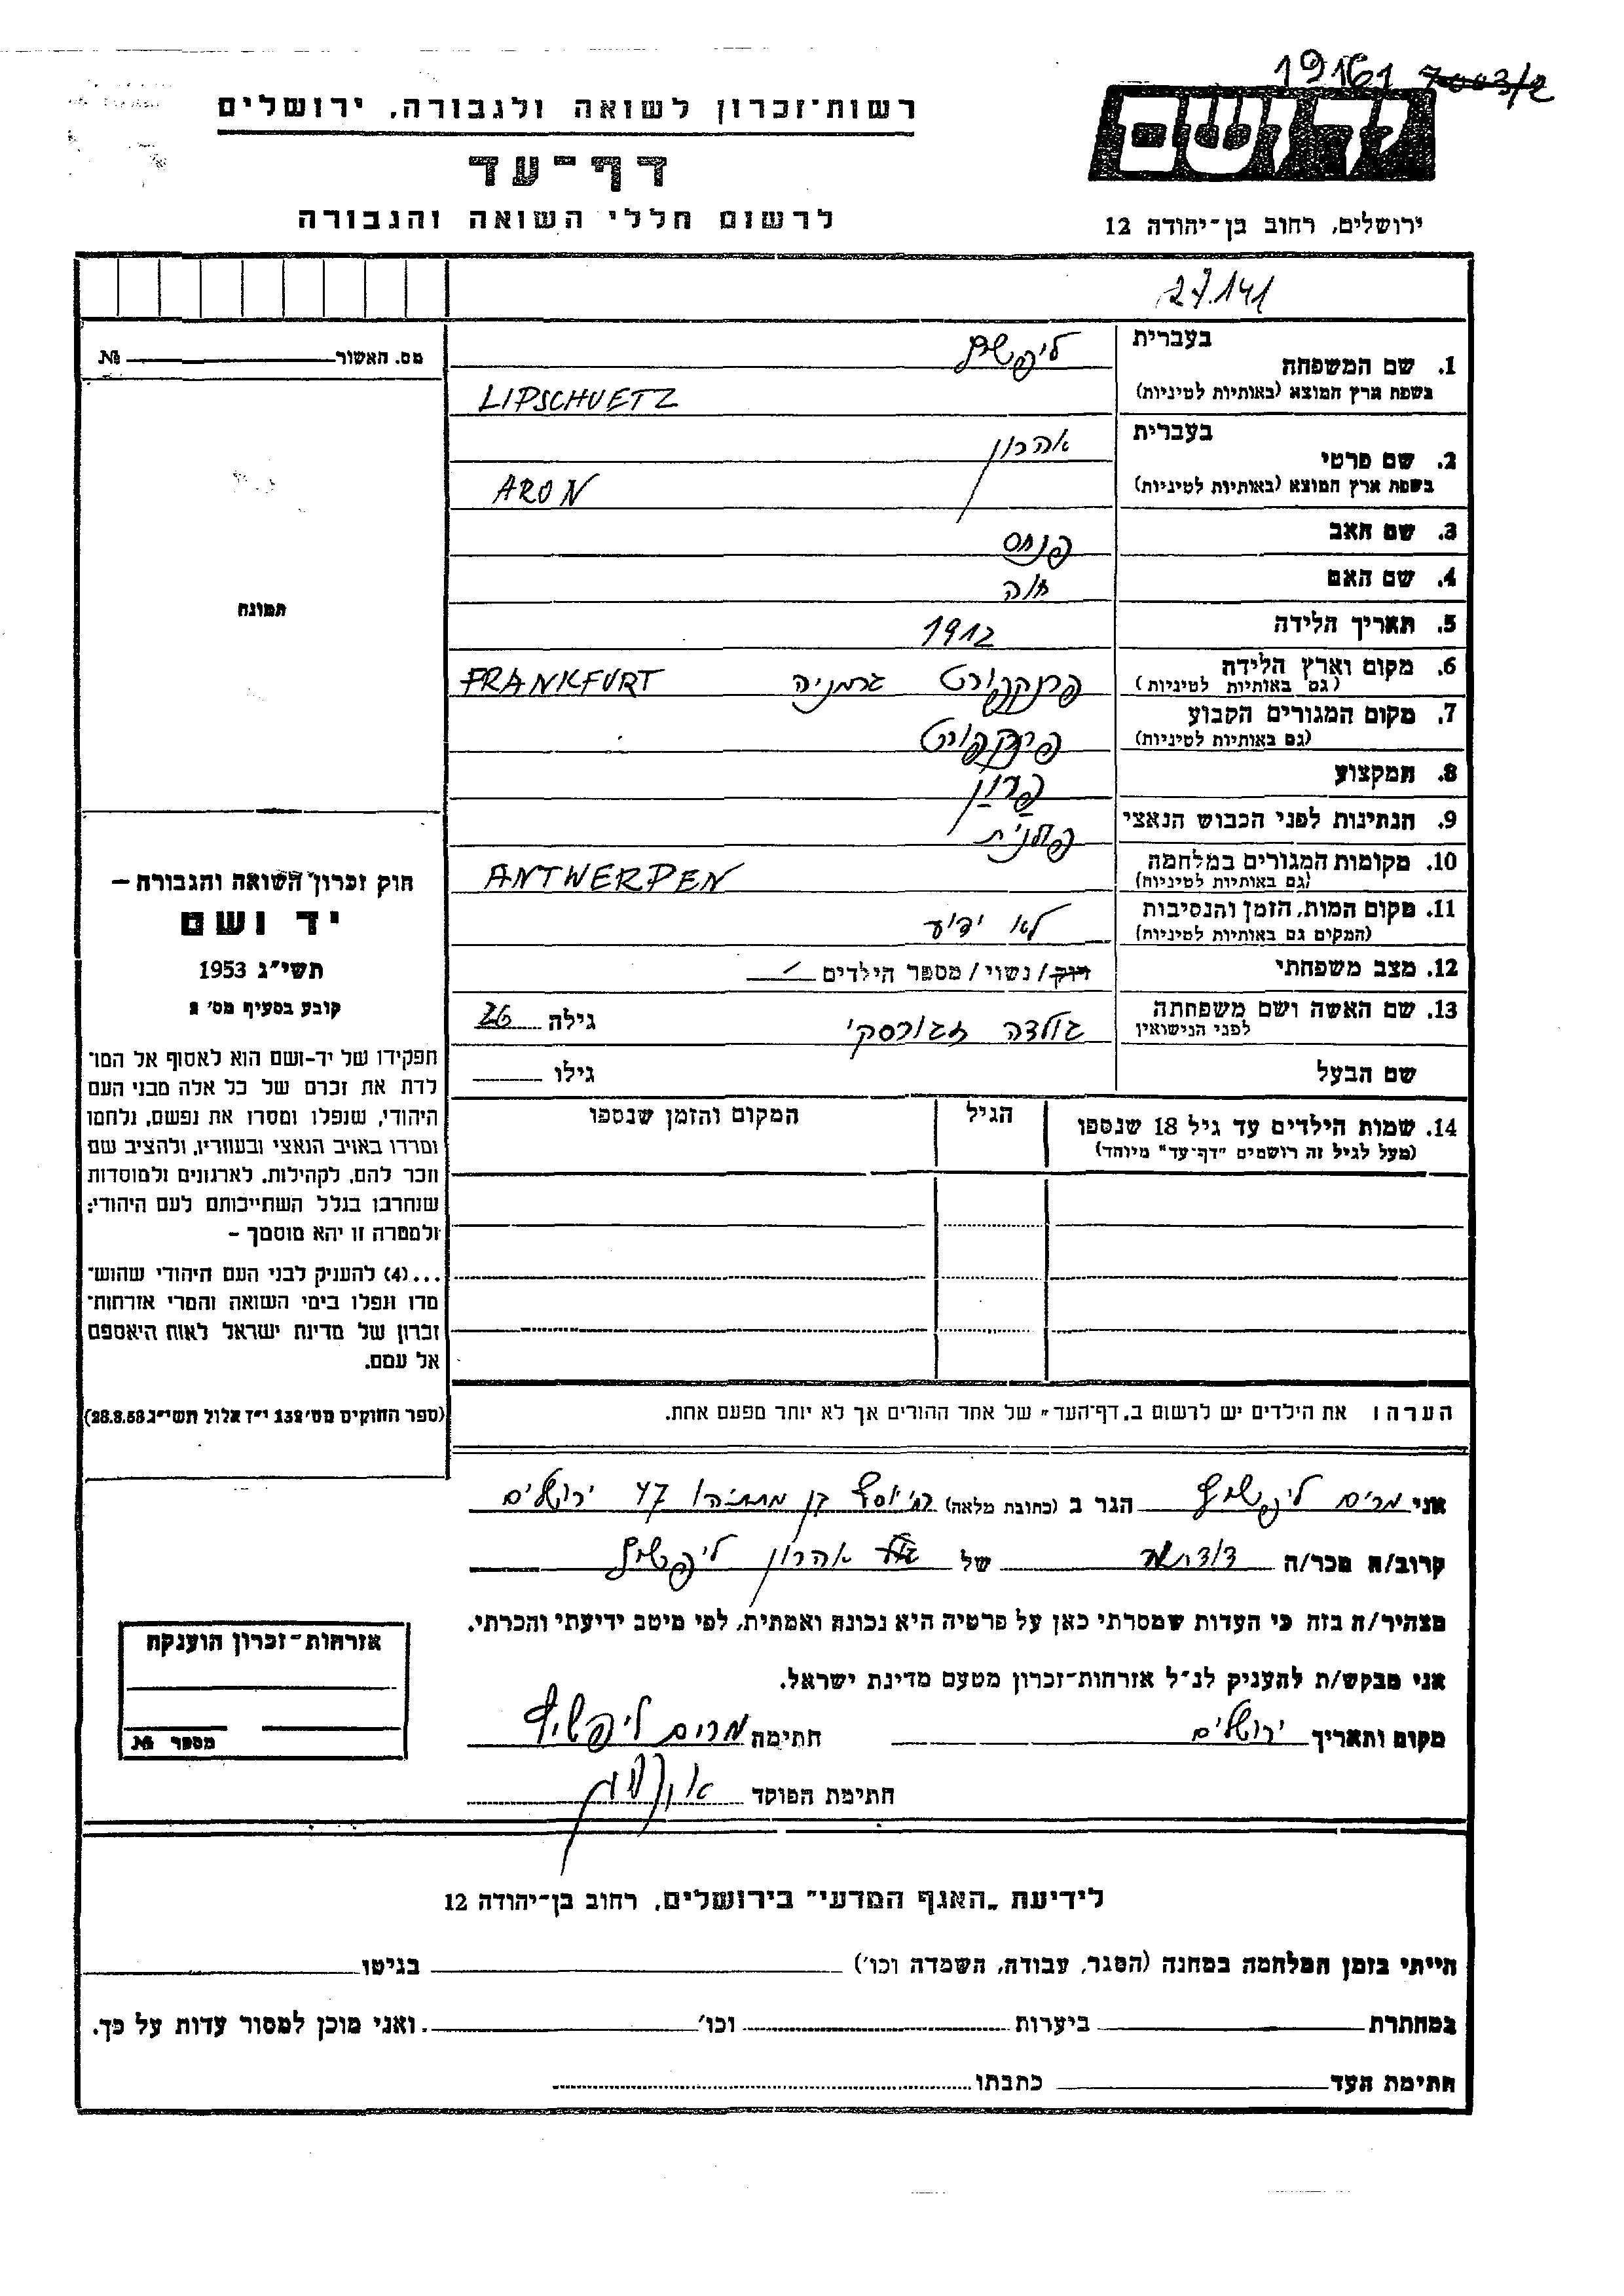 19161 7003/2
רשות־זכרון לשואה ולגבורה, ירושלים
ידושם
דף־עד
לרשום חללי השואה והגבורה
ירושלים, רחוב בן־יהודה 12
27.141
מס. האשור №
1. שם המשפחה בעברית ליפשיץ
בשפת ארץ המוצא (באותיות לטיניות) LIPSCHUETZ
2. שם פרטי בעברית אהרון
בשפת ארץ המוצא (באותיות לטיניות) ARON
3. שם האב פנחס
4. שם האם חוה
תמונה
5. תאריך הלידה 1912
6. מקום וארץ הלידה (גם באותיות לטיניות) פרנקפורט גרמניה FRANKFURT
7. מקום המגורים הקבוע (גם באותיות לטיניות) פרנקפורט
8. המקצוע
9. הנתינות לפני הכבוש הנאצי
10. מקומות המגורים במלחמה (גם באותיות לטיניות) ANTWERPEN
11. מקום המות, הזמן והנסיבות (המקום גם באותיות לטיניות) לא ידוע
12. מצב משפחתי רווק / נשוי / מספר הילדים
13. שם האשה ושם משפחתה לפני הנישואין גולדה זגורסקי גילה 26
שם הבעל גילו
14. שמות הילדים עד גיל 18 שנספו הגיל המקום והזמן שנספו
(מעל לגיל זה רושמים "דף־עד" מיוחד)
חוק זכרון השואה והגבורה –
יד ושם
תשי"ג 1953
קובע בסעיף מס' 2
תפקידו של יד-ושם הוא לאסוף אל המו־
לדת את זכרם של כל אלה מבני העם
היהודי, שנפלו ומסרו את נפשם, נלחמו
ומרדו באויב הנאצי ובעוזריו, ולהציב שם
וזכר להם, לקהילות, לארגונים ולמוסדות
שנחרבו בגלל השתייכותם לעם היהודי;
ולמטרה זו יהא מוסמך –
...(4) להעניק לבני העם היהודי שהוש־
מדו ונפלו בימי השואה והמרי אזרחות־
זכרון של מדינת ישראל לאות היאספם
אל עמם.
(ספר החוקים מס' 132 י"ז אלול תשי"ג 28.8.53)
הערה: את הילדים יש לרשום ב„דף־העד" של אחד ההורים אך לא יותר מפעם אחת.
אני מרים ליפשיץ הגר ב (כתובת מלאה) רח' יוסף בן מתתיהו 47 ירושלים
קרוב/ה מכר/ה של אהרון ליפשיץ
מצהיר/ה בזה כי העדות שמסרתי כאן על פרטיה היא נכונה ואמתית, לפי מיטב ידיעתי והכרתי.
אני מבקש/ת להעניק לנ"ל אזרחות־זכרון מטעם מדינת ישראל.
מקום ותאריך ירושלים חתימה מרים ליפשיץ
חתימת הפוקד
אזרחות־זכרון הוענקה
מספר №
לידיעת „האגף המדעי" בירושלים, רחוב בן־יהודה 12
הייתי בזמן המלחמה במחנה (הסגר, עבודה, השמדה וכו') בגיטו
במחתרת ביערות וכו' . ואני מוכן למסור עדות על כך.
חתימת העד כתבתו